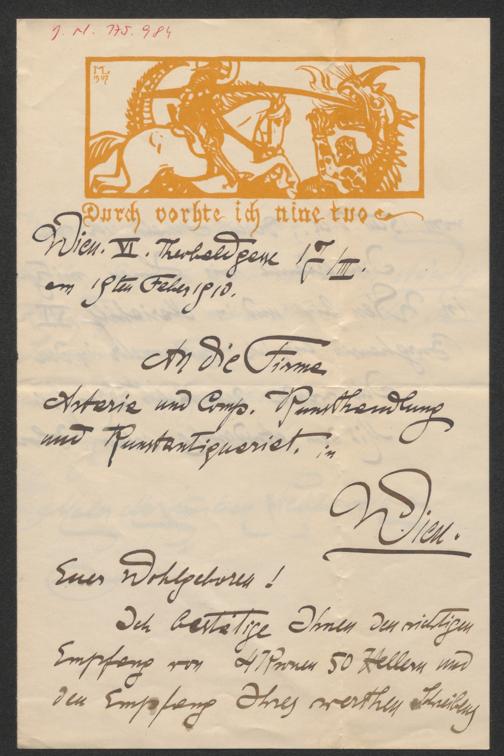 J. N. 175.984
ML
1907
Durch vorhte ich nine tuo
Wien. VI. Theobaldgasse 17/III.
am 19ten Feber 1910.
An die Firma
Artaria und Comp. Kunsthandlung
und Kunstantiquariat. in
Wien.
Euer Wohlgeboren!
Ich bestätige Ihnen den richtigen
Empfang von 4 Kronen 50 Hellern und
den Empfang Ihres werthen Schreibens